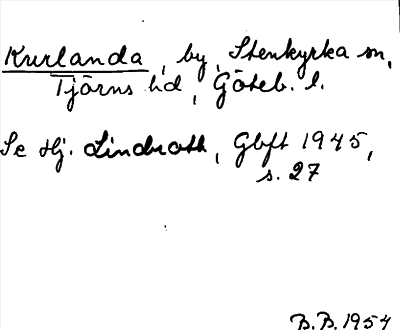 Kurlanda, by, Stenkyrka sn,
Tjörns hd, Göteb. l.
Se Hj. Lindroth, Gbft 1945,
s. 27
B.B. 1954